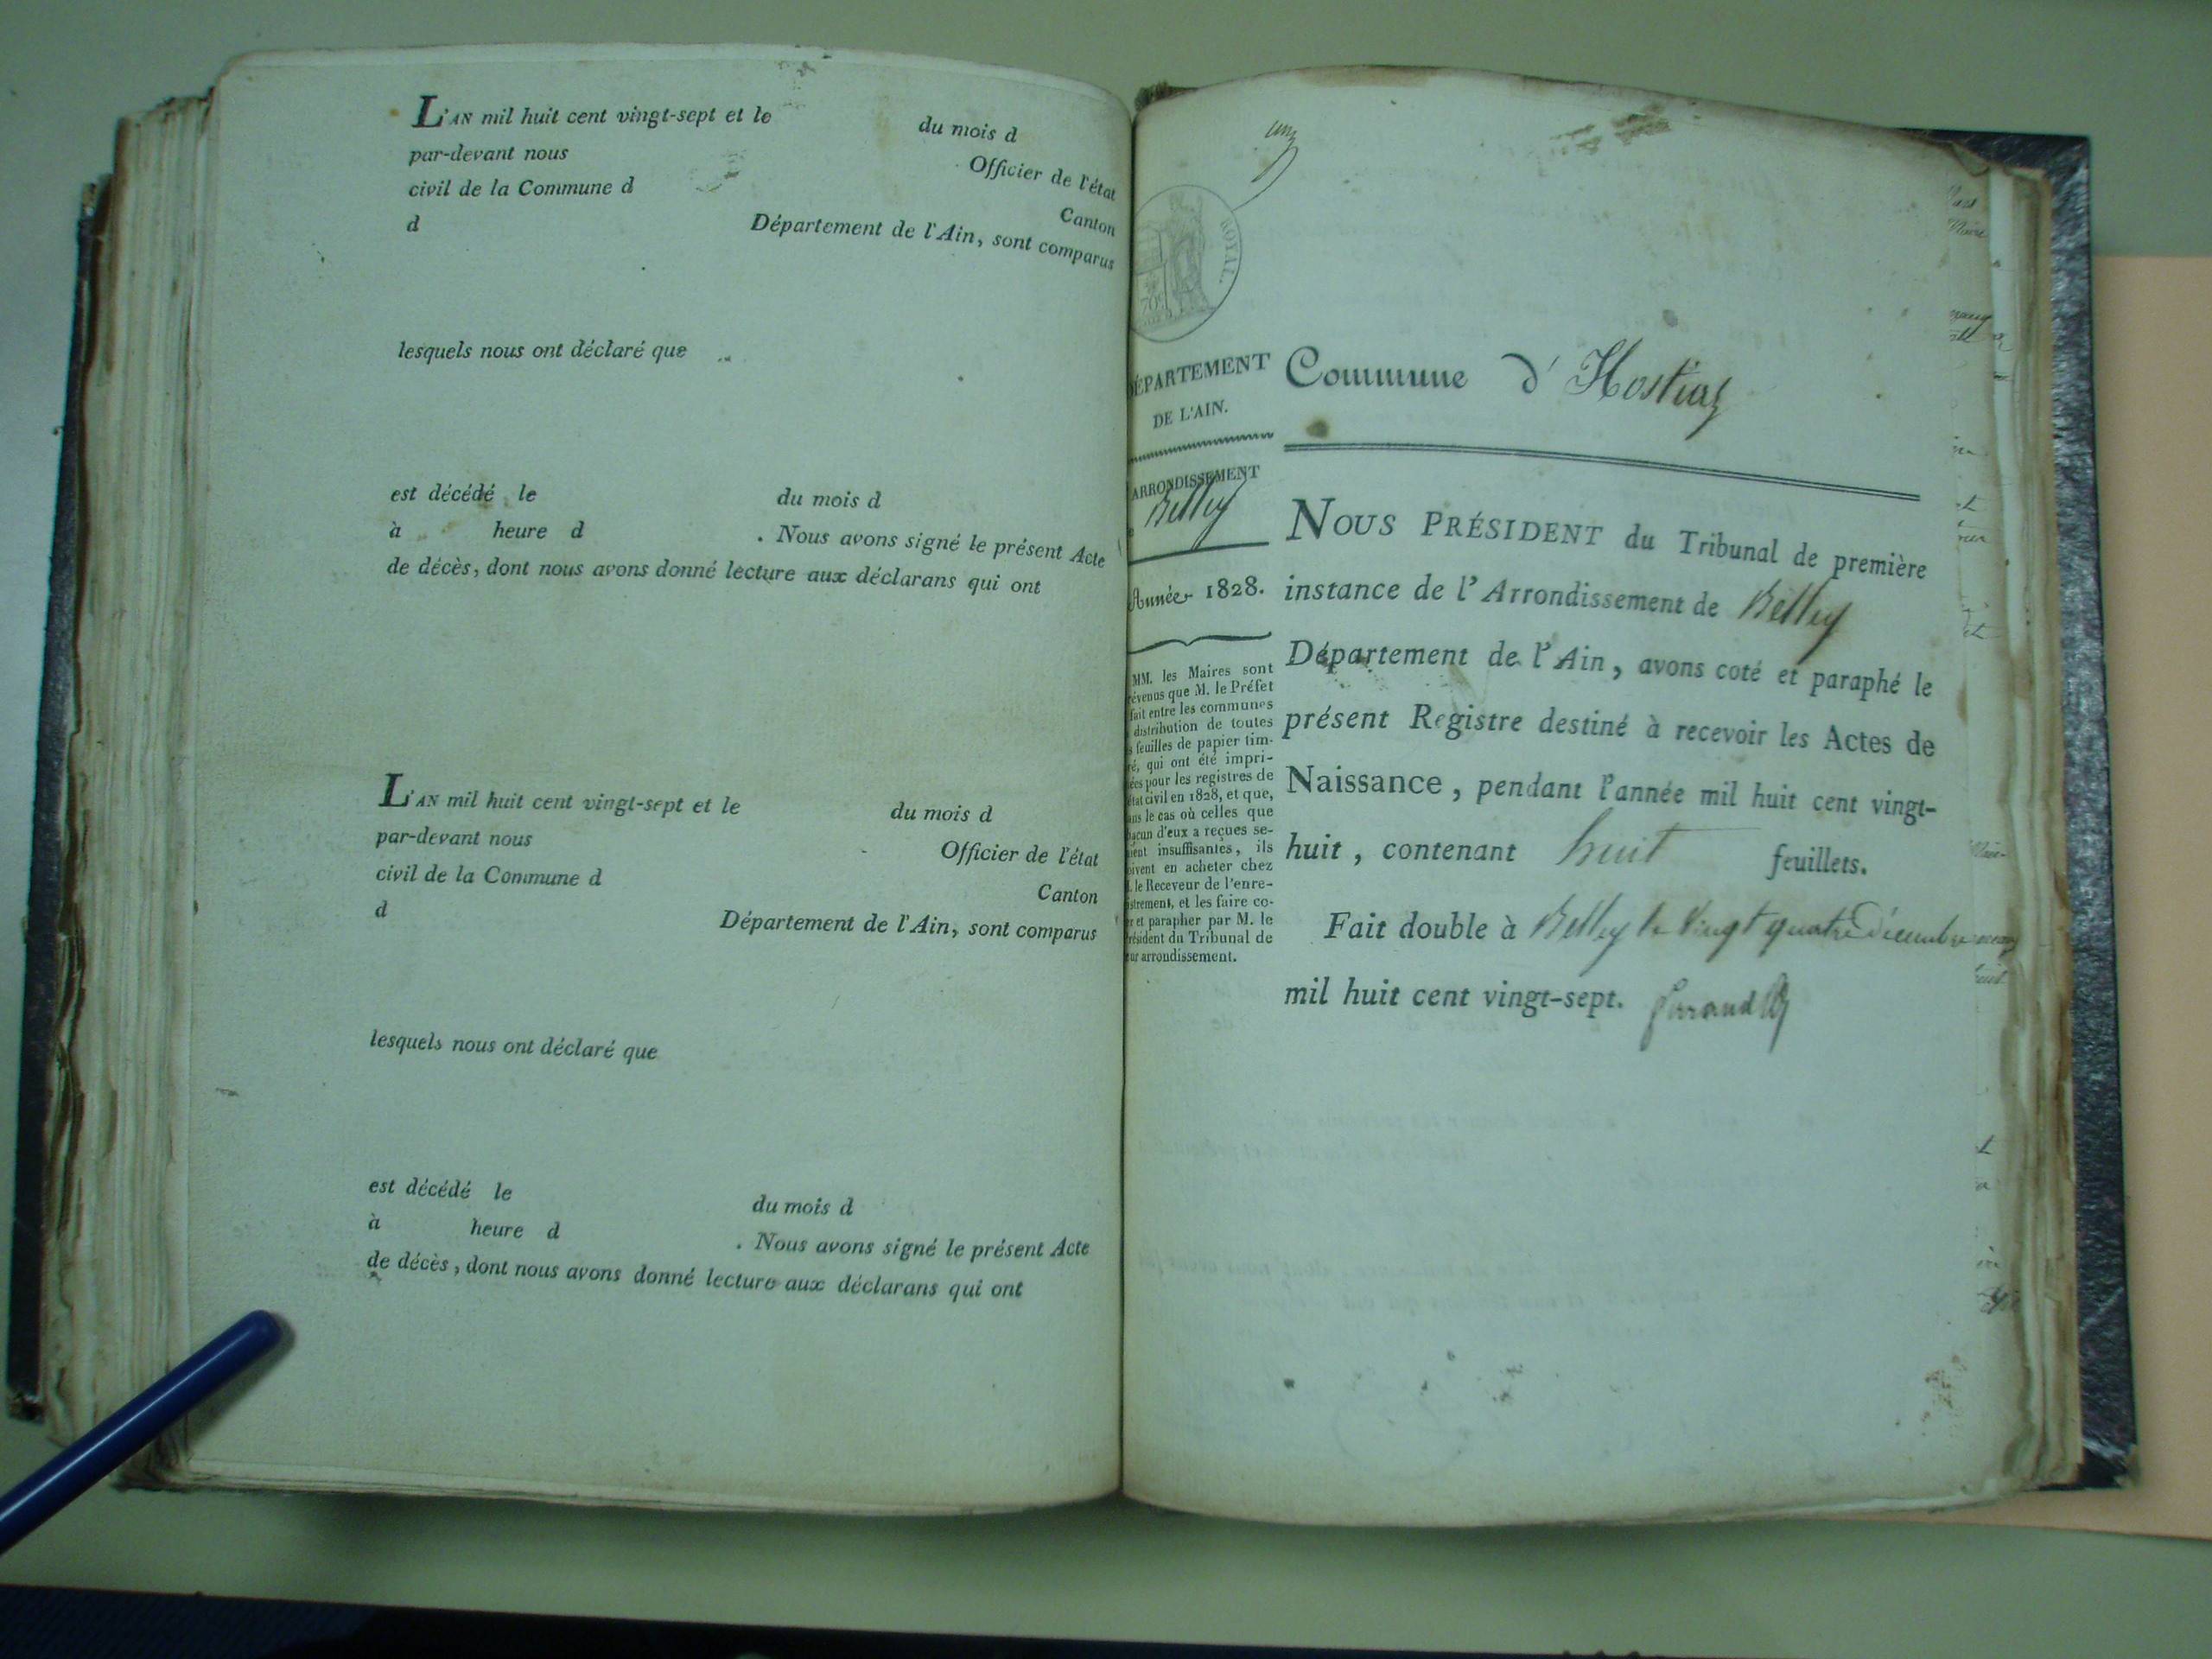 L'AN mil huit cent vingt-sept et le du mois d
par-devant nous Officier de l'état
civil de la Commune d Canton
d Département de l'Ain, sont comparus
lesquels nous ont déclaré que
est décédé le du mois d
à heure d . Nous avons signé le présent Acte
de décès, dont nous avons donné lecture aux déclarans qui ont
L'AN mil huit cent vingt-sept et le du mois d
par-devant nous Officier de l'état
civil de la Commune d Canton
d Département de l'Ain, sont comparus
lesquels nous ont déclaré que
est décédé le du mois d
à heure d . Nous avons signé le présent Acte
de décès, dont nous avons donné lecture aux déclarans qui ont
ROYAL.
DÉPARTEMENT
DE L'AIN.
ARRONDISSEMENT
Belley
Année 1828.
MM. les Maires sont
révenus que M. le Préfet
fait entre les communes
distribution de toutes
s feuilles de papier tim-
ré, qui ont été impri-
ées pour les registres de
état civil en 1828, et que,
ans le cas où celles que
hacun d'eux a reçues se-
ient insuffisantes, ils
oivent en acheter chez
. le Receveur de l'enre-
istrement, et les faire co-
er et parapher par M. le
résident du Tribunal de
eur arrondissement.
Commune d'Hostiaz
NOUS PRÉSIDENT du Tribunal de première
instance de l'Arrondissement de Belley
Département de l'Ain, avons coté et paraphé le
présent Registre destiné à recevoir les Actes de
Naissance, pendant l'année mil huit cent vingt-
huit, contenant huit feuillets.
Fait double à Belley le Vingt quatre Décembre
mil huit cent vingt-sept.